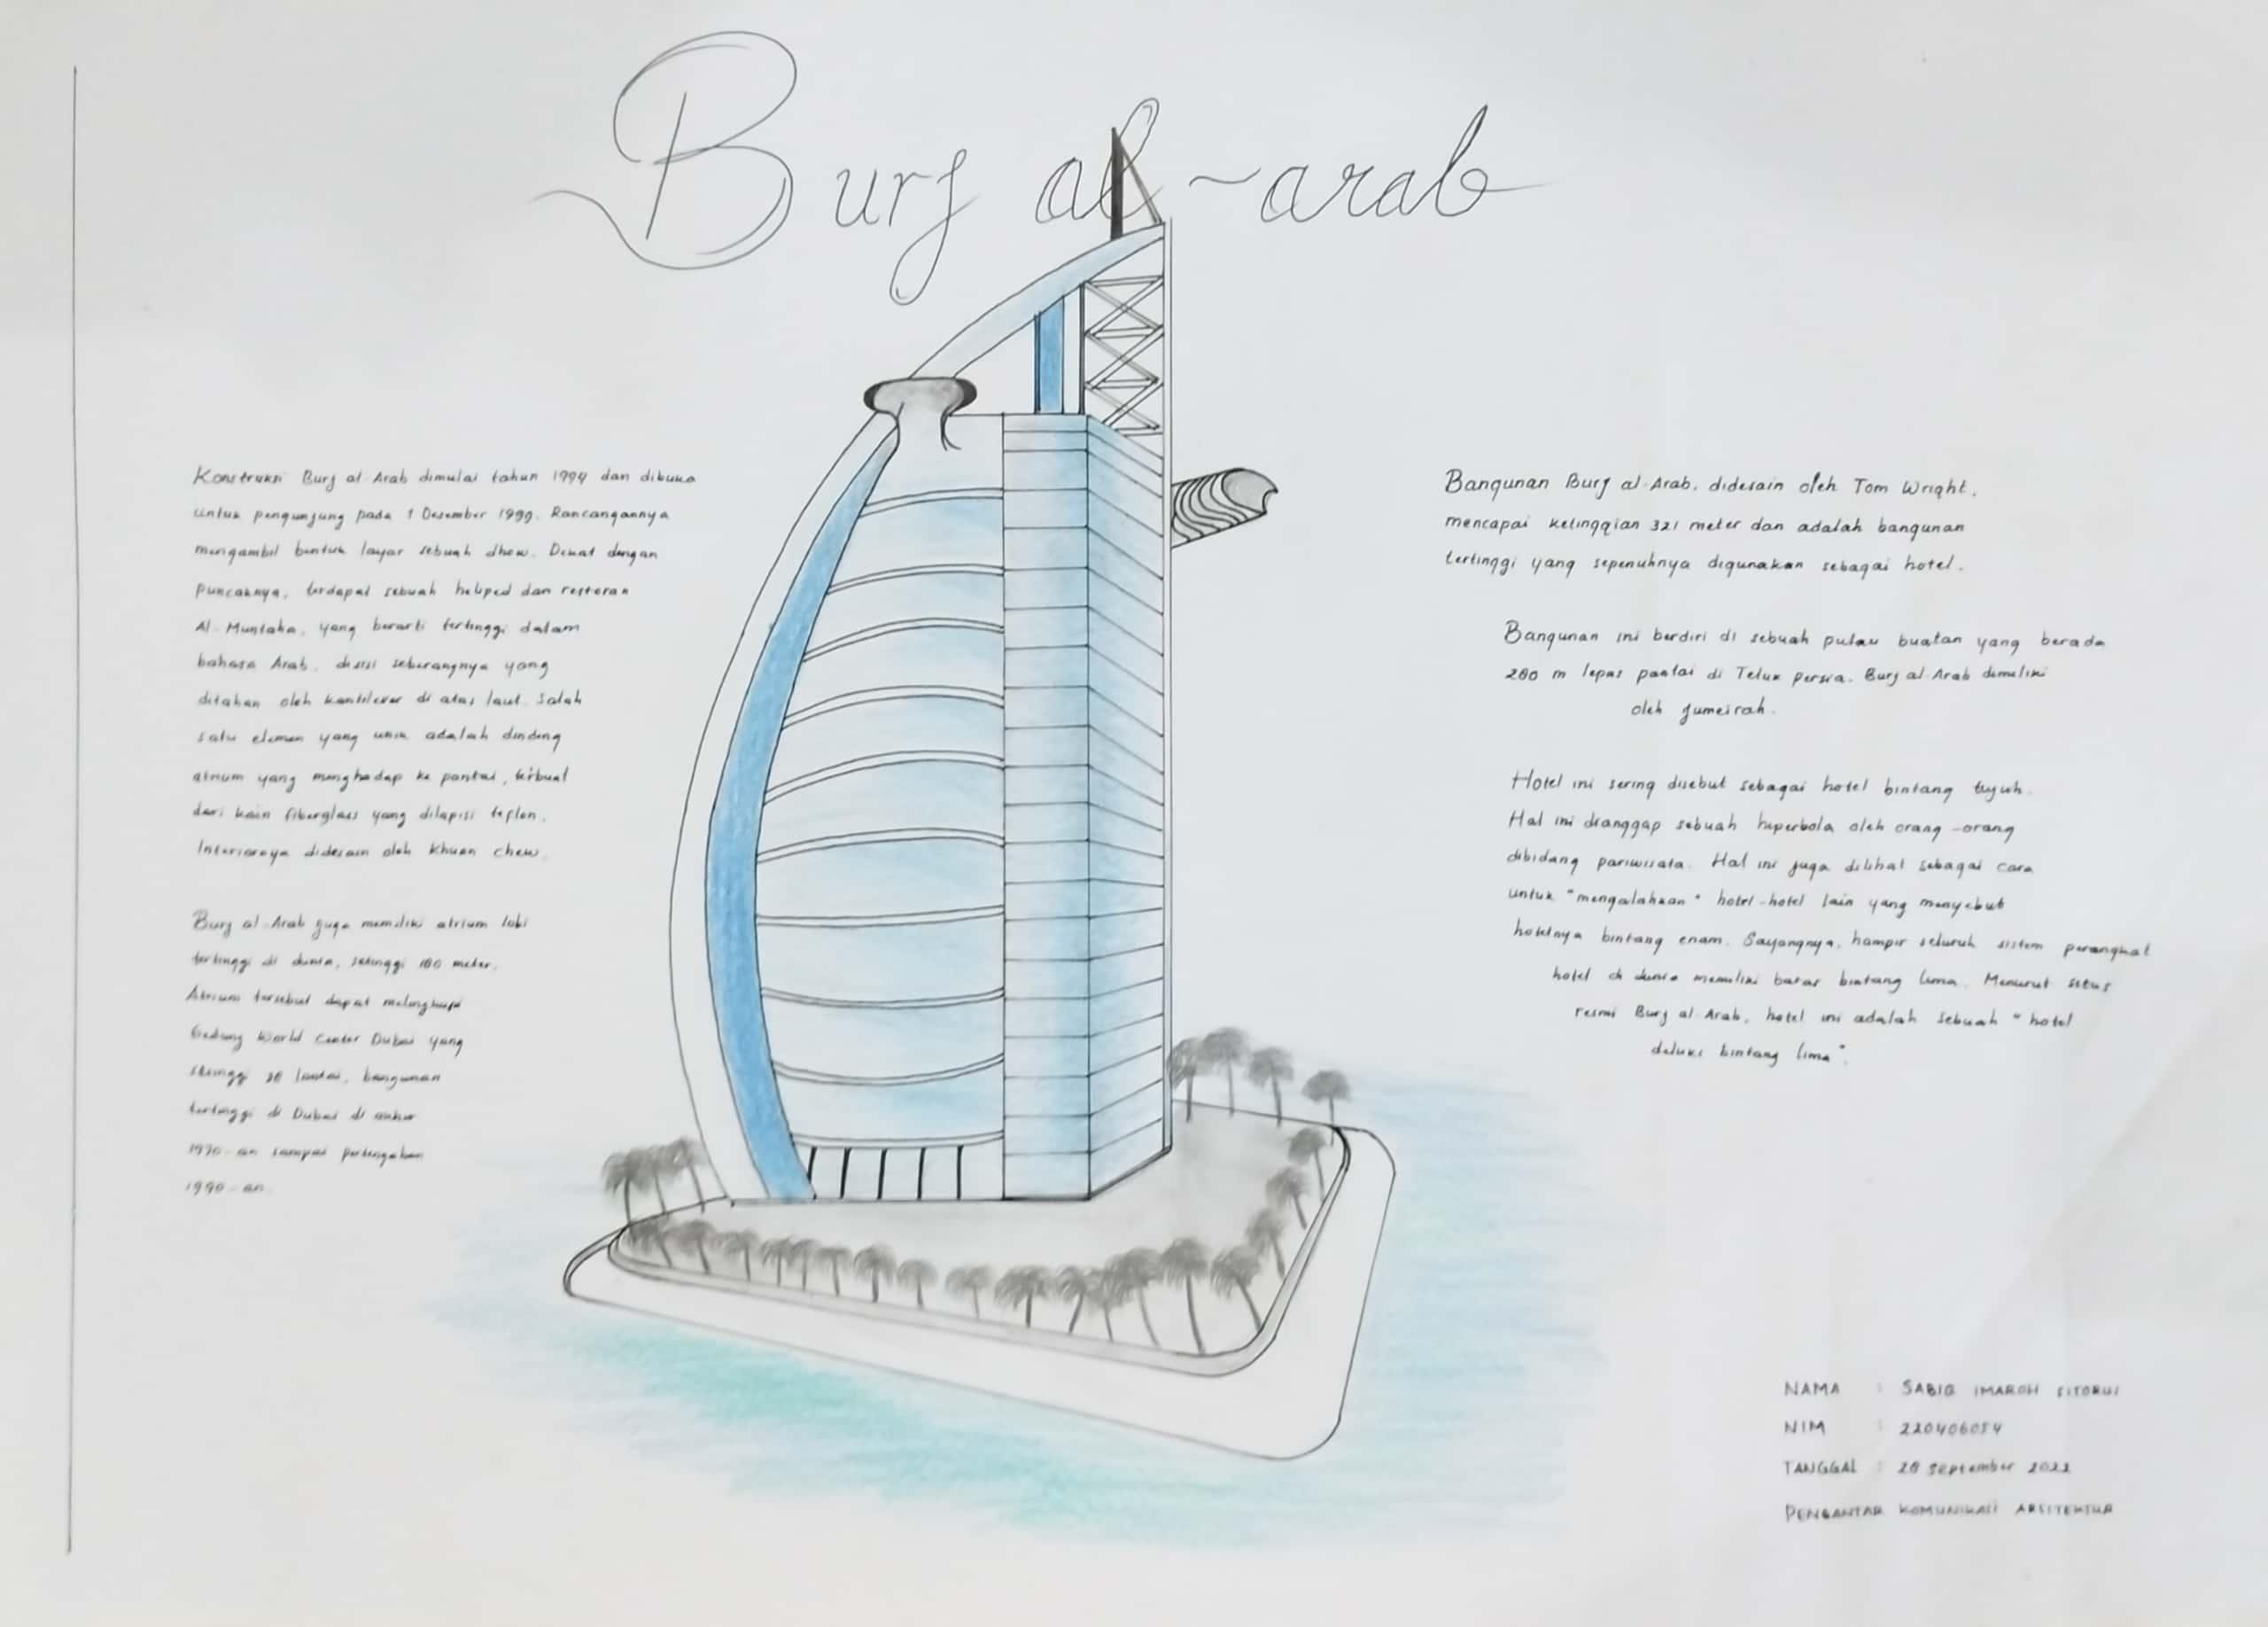 Burj al-arab
Konstruksi Burj al Arab dimulai tahun 1994 dan dibuka
untuk pengunjung pada 1 Desember 1999. Rancangannya
mengambil bentuk layar sebuah dhow. Dekat dengan
puncaknya, terdapat sebuah helipad dan restoran
Al-Muntaha, yang berarti tertinggi dalam
bahasa Arab, disisi seberangnya yang
ditahan oleh kantilever di atas laut. Salah
satu elemen yang unik adalah dinding
atrium yang menghadap ke pantai, terbuat
dari kain fiberglass yang dilapisi teflon.
Interiornya didesain oleh Khuan chew.
Burj al-Arab juga memiliki atrium lobi
tertinggi di dunia, setinggi 180 meter.
Atrium tersebut dapat melingkupi
Gedung World Center Dubai yang
setinggi 38 lantai, bangunan
tertinggi di Dubai di akhir
1970-an sampai pertengahan
1990-an
Bangunan Burj al-Arab, didesain oleh Tom Wright,
mencapai ketinggian 321 meter dan adalah bangunan
tertinggi yang sepenuhnya digunakan sebagai hotel.
Bangunan ini berdiri di sebuah pulau buatan yang berada
280 m lepas pantai di Teluk persia. Burj al-Arab dimiliki
oleh jumeirah.
Hotel ini sering disebut sebagai hotel bintang tujuh.
Hal ini dianggap sebuah hiperbola oleh orang-orang
dibidang pariwisata. Hal ini juga dilihat sebagai cara
untuk "mengalahkan" hotel-hotel lain yang menyebut
hotelnya bintang enam. Sayangnya, hampir seluruh sistem perangkat
hotel di dunia memiliki batas bintang lima. Menurut situs
resmi Burj al-Arab, hotel ini adalah sebuah "hotel
deluks bintang lima".
NAMA : SABIQ IMAROH SITORUS
NIM : 220406054
TANGGAL : 28 September 2022
PENGANTAR KOMUNIKASI ARSITEKTUR